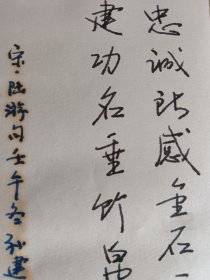 忠诚能感金石
建功名垂竹帛
宋·陆游句壬午冬孙建